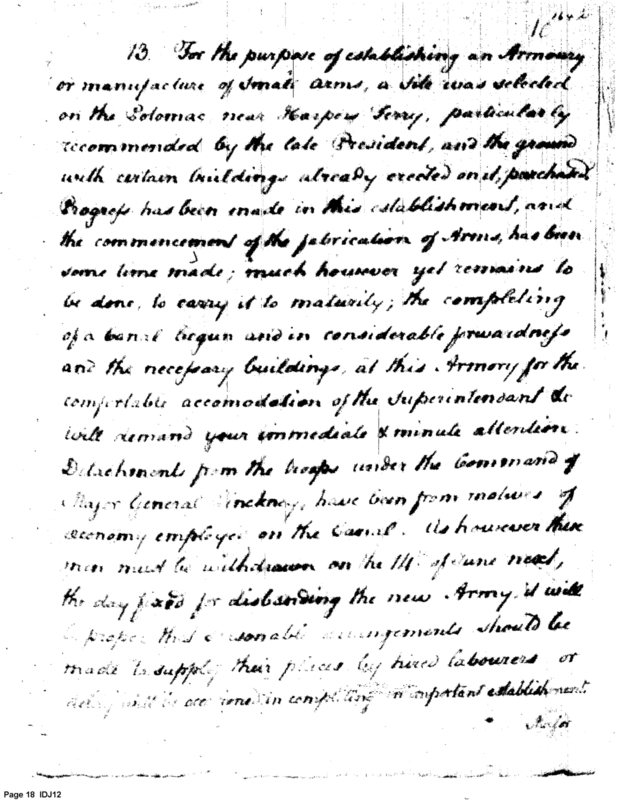 1642
10
13. For the purpose of establishing an Armoury
or manufacture of Small Arms, a Site was selected
on the Potomac near Harpers Ferry, particularly
recommended by the late President, and the ground
with certain buildings already erected on it, purchased.
Progress has been made in this establishment, and
the commencement of the fabrication of Arms, has been
some time made; much however yet remains to
be done, to carry it to maturity; the completing
of a Canal begun and in considerable forwardness
and the necessary buildings, at this Armory for the
comfortable accomodation of the Superintendant &c
will demand your immediate & minute attention.
Detachments from the troops under the Command of
Major General Pinckney, have been from motives of
œconomy employed on the Canal. As however these
men must be withdrawn on the 14th of June next,
the day fixed for disbanding the new Army, it will
be proper that seasonable arrangements should be
made to supply their places by hired labourers or
delay will be occasioned in completing an important establishment.
Major
Page 18 IDJ12